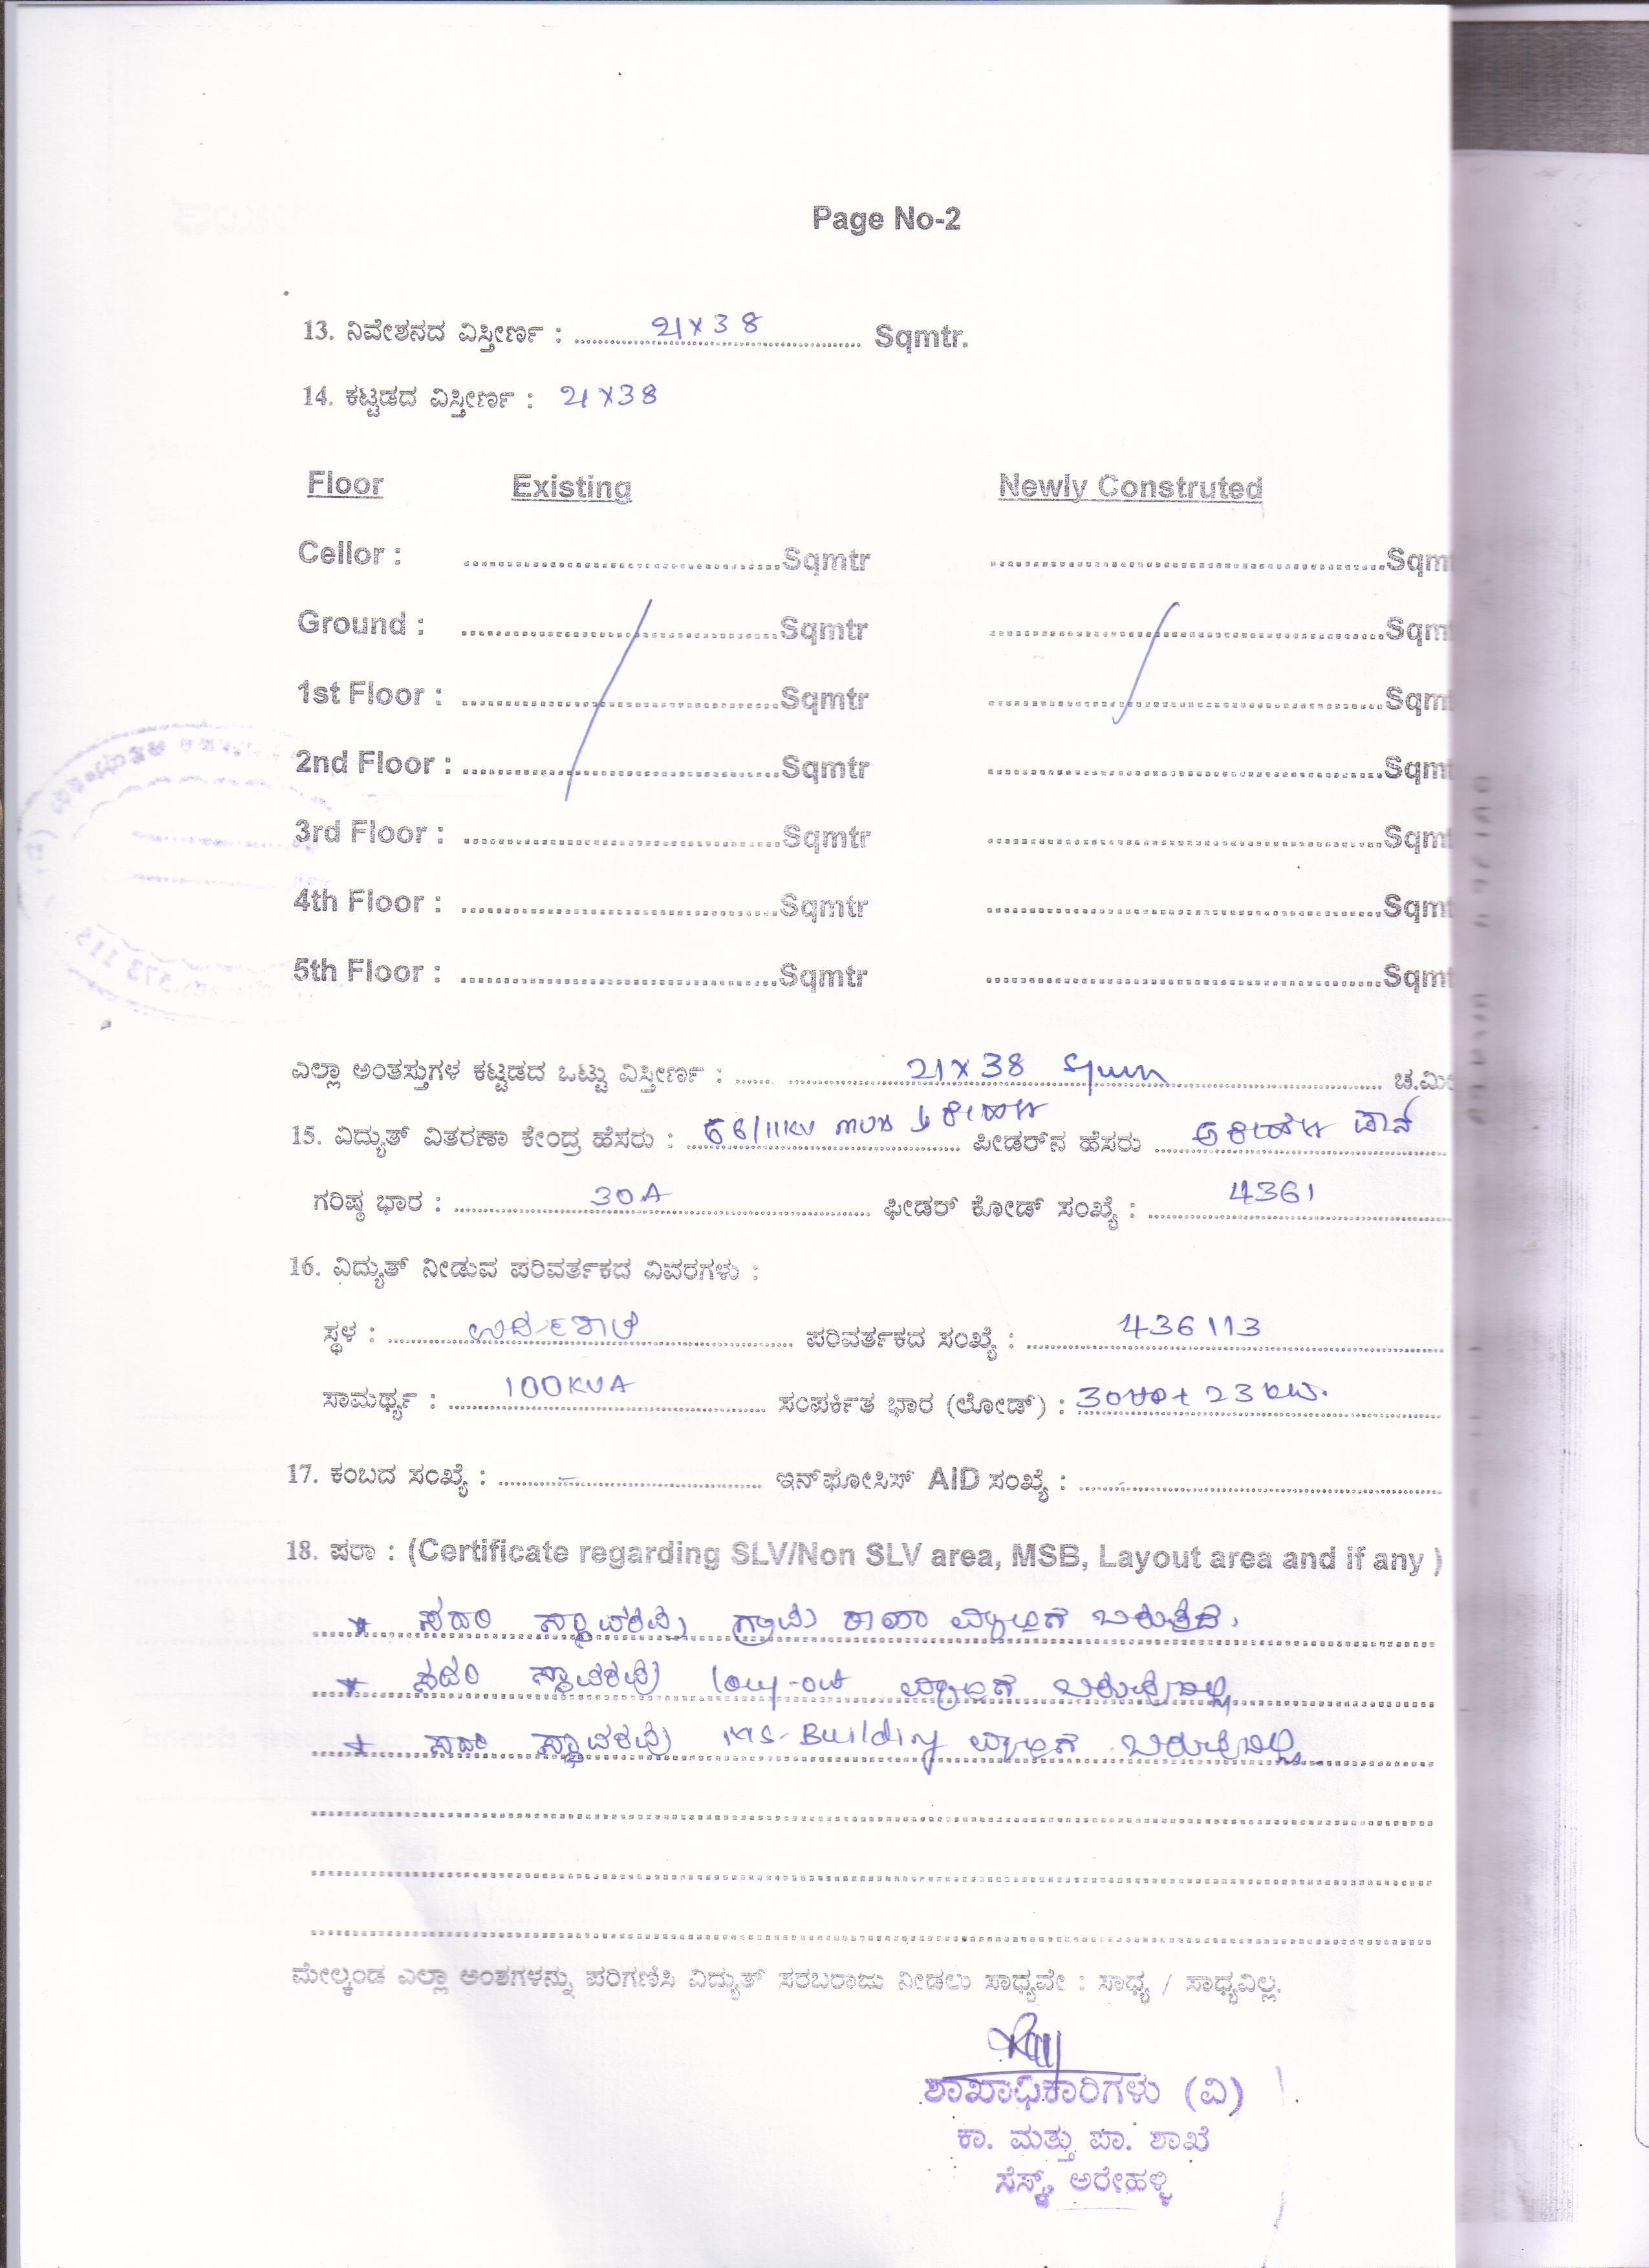 Page No-2
13. ನಿವೇಶನದ ವಿಸ್ತೀರ್ಣ : 21 x 38 Sqmtr.
14. ಕಟ್ಟಡದ ವಿಸ್ತೀರ್ಣ : 21 x 38
Floor Existing Newly Constructed
Cellor : Sqmtr Sqm
Ground : Sqmtr Sqm
1st Floor : Sqmtr Sqm
2nd Floor : Sqmtr Sqm
3rd Floor : Sqmtr Sqm
4th Floor : Sqmtr Sqm
5th Floor : Sqmtr Sqm
ಎಲ್ಲಾ ಅಂತಸ್ತುಗಳ ಕಟ್ಟಡದ ಒಟ್ಟು ವಿಸ್ತೀರ್ಣ : 21 x 38 ಚ.ಮಿ
15. ವಿದ್ಯುತ್ ವಿತರಣಾ ಕೇಂದ್ರ ಹೆಸರು : 66/11KV ಪೀಡರ್‌ನ ಹೆಸರು
ಗರಿಷ್ಠ ಭಾರ : 30A ಫೀಡರ್ ಕೋಡ್ ಸಂಖ್ಯೆ : 4361
16. ವಿದ್ಯುತ್ ನೀಡುವ ಪರಿವರ್ತಕದ ವಿವರಗಳು :
ಸ್ಥಳ : ಪರಿವರ್ತಕದ ಸಂಖ್ಯೆ : 436113
ಸಾಮರ್ಥ್ಯ : 100KVA ಸಂಪರ್ಕಿತ ಭಾರ (ಲೋಡ್) :
17. ಕಂಬದ ಸಂಖ್ಯೆ : - ಇನ್‌ಫೋಸಿಸ್ AID ಸಂಖ್ಯೆ :
18. ಷರಾ : (Certificate regarding SLV/Non SLV area, MSB, Layout area and if any )
* ಸದರಿ ಸ್ಥಾವರವು ಗ್ರಾಮ ಠಾಣಾ ವ್ಯಾಪ್ತಿಗೆ ಬರುತ್ತದೆ.
* ಸದರಿ ಸ್ಥಾವರವು lay-out ವ್ಯಾಪ್ತಿಗೆ ಬರುವುದಿಲ್ಲ
* ಸದರಿ ಸ್ಥಾವರವು MS-Building ವ್ಯಾಪ್ತಿಗೆ ಬರುವುದಿಲ್ಲ
ಮೇಲ್ಕಂಡ ಎಲ್ಲಾ ಅಂಶಗಳನ್ನು ಪರಿಗಣಿಸಿ ವಿದ್ಯುತ್ ಸರಬರಾಜು ನೀಡಲು ಸಾಧ್ಯವೇ : ಸಾಧ್ಯ / ಸಾಧ್ಯವಿಲ್ಲ.
ಶಾಖಾಧಿಕಾರಿಗಳು (ವಿ)
ಕಾ. ಮತ್ತು ಪಾ. ಶಾಖೆ
ಸೆಸ್ಕ್, ಅರೇಹಳ್ಳಿ